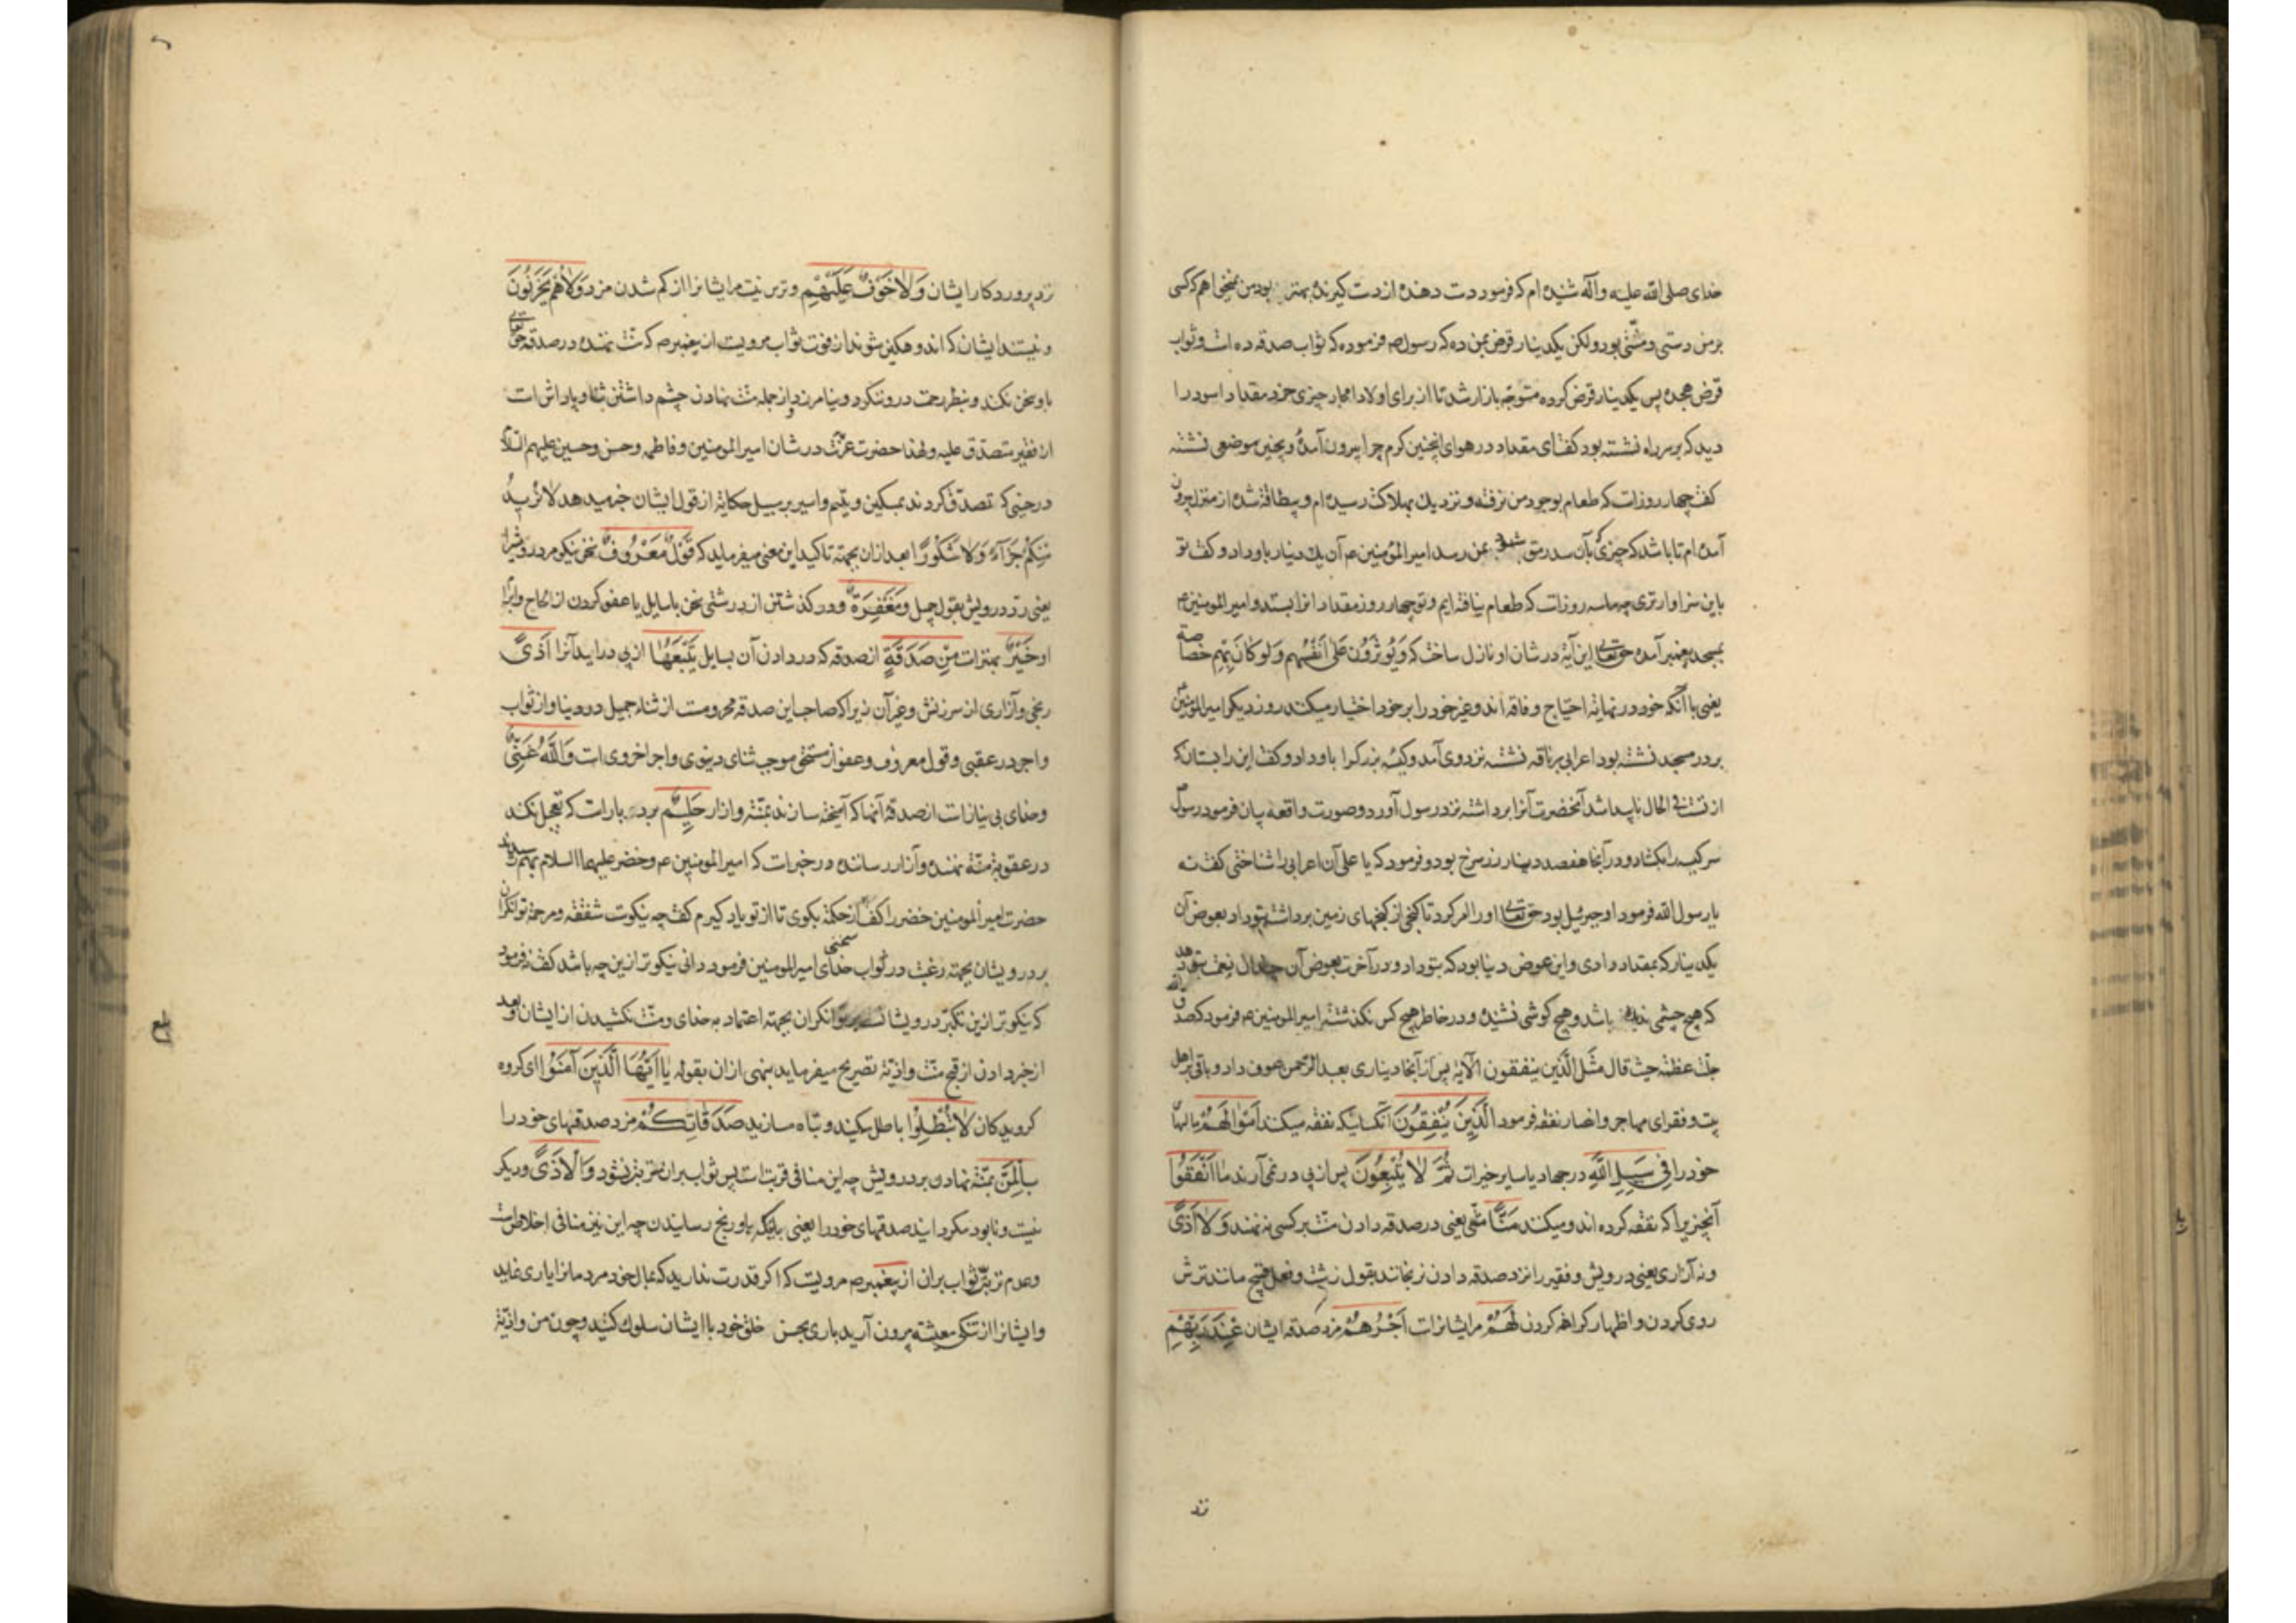 خدای صلی الله علیه وآله شنیده ام که فرمود دست دهنده از دست گیرنده بهتر بود من نمیخواهم که کسی
بر من دستی و منتی بود ولکن یکدینار قرض بمن ده که رسول ص فرموده که ثواب صدقه ده است و ثواب
قرض هجده پس یکدینار قرض کرده متوجه بازار شد تا از برای اولاد امجاد چیزی خرد مقداد اسود را
دید که بر سر راه نشسته بود کفت ای مقداد در هوای اینچنین کرم چرا بیرون آمدهٔ و بچنین موضعی نشسته
کفت چهار روزاست که طعام بوجود من نرفته و نزدیک بهلاکت رسیده ام و بیطاقت شده از منزل بیرون
آمده ام تا باشد که چیزی که بآن سد رمق شود بمن رسد امیر المؤمنین ع آن یک دینار باو داد و کفت تو
باین سزاوارتری چه ما سه روزاست که طعام نیافته ایم و تو چهار روز مقداد انرا بستد و امیر المومنین ع
بمسجد پیغمبر آمده حق تعالی این آیه در شان او نازل ساخت که وَیُؤثِرُونَ عَلیٰ اَنفُسِهِم وَلَو کَانَ بِهِم خَصَاصَة
یعنی با آنکه خود در نهایة احتیاج و فاقه اند و غیر خود را بر خود اختیار میکنند روز دیگر امیر المومنین
بر در مسجد نشسته بود اعرابی بر ناقه نشسته نزد وی آمد و کیسه بزرک را باو داد و کفت این را بستان که
از تست فی الحال ناپیدا شد آنحضرت آنرا برداشته نزد رسول آورد و صورت واقعه بیان فرمود رسول
سر کیسه را بکشاد و در آنجا هفصد دینار زر سرخ بود و فرمود که یا علی آن اعرابی را شناختی کفت نه
یا رسول الله فرمود او جبرئیل بود حق تعالی او را امر کرد تا کنجی از کنجهای زمین برداشته بتو داد بعوض آن
یکدینار که بمقداد دادی و این عوض دنیا بود که بتو داد و در آخرت بعوض آن چندان نعمت بتو دهد
که هیچ چشمی ندیده باشد و هیچ کوشی نشنیده و در خاطر هیچ کس نکذشته امیر المومنین ع فرمود که صدق الله
جلت عظمته حیث قال مَثَلُ الَّذین ینفقون الآیة پس از آنجا دیناری بعبد الرحمن عوف داد و باقی بر اهل
بیت و فقرای مهاجر و انصار نفقه فرمود الَّذِینَ یُنفِقُونَ آنکسانیکه نفقه میکنند اَموَالَهُم مالهای
خود را فِی سَبِیلِ اللهِ در جهاد یا سایر خیرات ثُمَّ لَا یُتبِعُونَ پس از پی در نمی آرند مَا اَنفَقُوا
آنچیزیرا که نفقه کرده اند و میکنند مَنًّا منتی یعنی در صدقه دادن منت بر کسی نه نهند وَلَا اَذًی
و نه آزاری یعنی درویش و فقیر را نزد صدقه دادن نرنجانند بقول زشت و فعل قبیح مانند ترش
روی کردن و اظهار کراهه کردن لَهُم مر ایشانراست اَجرُهُم مزد صدقه ایشان عِندَ رَبِّهِم
نزد
نزد پروردکار ایشان وَلَا خَوفٌ عَلَیهِم و ترس نیست مر ایشانرا از کم شدن مزد وَلَا هُم یَحزَنُونَ
و نیستند ایشان که اندوهکین شوند از فوت ثواب مرویست از پیغمبر ص که منت نهنده در صدقه حق تعالی
باو سخن نکند و بنظر رحمت درو ننکرد و نیامرزد و از جمله منت نهادن چشم داشتن ثنا و پاداش است
از فقیر متصدق علیه و لهذا حضرت عزت در شان امیر المومنین و فاطمه و حسن و حسین علیهم السلام
در حینی که تصدق کردند بمسکین و یتیم و اسیر بر سبیل حکایة از قول ایشان خبر میدهد لَا نُرِیدُ
مِنکُم جَزَآءً وَلَا شُکُورًا بعد از ان بجهة تاکید این معنی میفرماید که قَولٌ مَعرُوفٌ سخن نیکو مر درویش را
یعنی رد درویش بقول جمیل وَمَغفِرَةٌ و در کذشتن از درشتی سخن با سایل یا عفو کردن از الحاح و ابرام
او خَیرٌ بهتراست مِن صَدَقَةٍ از صدقه که در دادن آن بسایل یَتبَعُهَا از پی در اید آنرا اَذًی
رنجی و آزاری از سرزنش و غیر آن زیرا که صاحب این صدقه محرومست از ثناء جمیل در دنیا و از ثواب
و اجر در عقبی و قول معروف و عفو از مستحق موجب ثنای دینوی و اجر اخروی است وَاللهُ غَنِیٌّ
و خدای بی نیازاست از صدقهٔ آنها که آمیخته سازند بمنت و ازار حَلِیمٌ بردبارست که تعجیل نکند
در عقوبة منت نهنده و آزار رساننده در خبراست که امیر المومنین ع و خضر علیهما السلام بهم رسیدند
حضرت امیر المومنین خضر را کفت از حکمت بکوی تا از تو یاد کیرم کفت چه نیکوست شفقه و مرحمة توانکران
بر درویشان بجهة رغبت در ثواب خدای امیر المومنین فرمود سخنی دانی نیکوتر از این چه باشد کفت نه فرمود
که نیکوتر ازین تکبر درویشانست بر توانکران بجهة اعتماد به خدای و منت نکشیدن از ایشان و بعد
از خبر دادن از قبح منت و اذیة تصریح میفرماید بنهی از ان بقوله یَا اَیُّهَا الَّذِینَ آمَنُوا ای کروه
کرویدکان لَا تُبطِلُوا باطل مکنید و تباه مسازید صَدَقَاتِکُم مزد صدقهای خود را
بِالمَنِّ بمنة نهادن بر درویش چه این منافی قربتست پس ثواب بران مترتب نشود وَالاَذَی و دیکر
نیست و نابود مکردانید صدقهای خود را یعنی بآنکه باو رنج رسانیدن چه این نیز منافی اخلاص است
و عدم ترتب ثواب بران از پیغمبر ص مرویست که اکر قدرت ندارید که بمال خود مردمانرا یاری نماید
و ایشانرا از تنکی معیشة بیرون آرید باری بحسن خلق خود با ایشان سلوک کنید و چون من و اذیة
بلغ